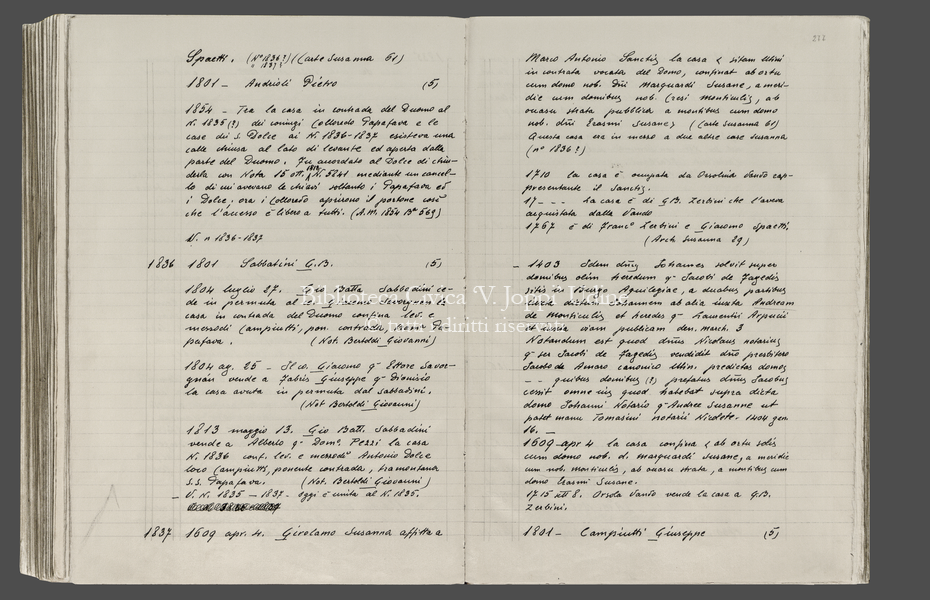 Spaetti. (N° 1836?) (Carte Susanna 61)
" 1837?
1801 - Andrioli Pietro (5)
1854 - Tra la casa in contrada del Duomo al
N. 1835 (?) di coniugi Colloredo Papafava e le
case di S. Dolce ai N. 1836-1837 esisteva una
calle chiusa al lato di levante ed aperta dalla
parte del Duomo. Fu accordato al Dolce di chiu-
derla con Nota 15 ott. 1812 N. 5841 mediante un cancel-
lo di cui avevano le chiavi soltanto i Papafava ed
i Dolce; ora i Colloredo aprirono il portone così
che l'accesso è libero a tutti. (A.M. 1854 B° 569)
V. n 1836-1837
1836 1801 Sabbadini G.B. (5)
1804 luglio 27. G. Batta Sabbadini ce-
de in permuta al Giacomo Savorgnan la
casa in contrada del Duomo confina lev. e
mezzodì Campiutti, pon. contrada, tram. Pa-
pafava. (Not. Bertoldi Giovanni)
1804 ag. 25 - Il co. Giacomo q- Ettore Savor-
gnan vende a Fabris Giuseppe q- Dionisio
la casa avuta in permuta dal Sabbadini.
(Not Bertoldi Giovanni)
1813 maggio 13. Gio Batt. Sabbadini
vende a Alberto q- Dom° Pezzi la casa
N. 1836 conf. lev. e mezzodì Antonio Dolce
loco Campiutti, ponente contrada, tramontana
S.S. Papafava. (Not. Bertoldi Giovanni)
- V. N. 1835 - 1837 - oggi è unita al N. 1835.
1837 1609 apr. 4. Girolamo Susanna affitta a
217
Marco Antonio Sanctis la casa < sitam Utini
in contrata vocata del Domo, confinat ab ortu
cum domo nob. Dni Marquardi Susane, a meri-
die cum domibus nob. Cresi Monticulis, ab
occasu strata publica a montibus cum domo
nob. dni Erasmi Susane> (Carte Susanna 61)
Questa casa era in mezzo a due altre case Susanna
(n° 1836?)
1710 la casa è occupata da Orsolina Vando rap-
presentante il Sanctis.
17 - - - la casa è di G.B. Zerbini che l'aveva
acquistata dalla Vando
1767 è di Franc° Zerbini e Giacomo Spaetti.
(Arch Susanna 29)
- 1403 Idem dnus Johannes solvit super
domibus olim heredum q- Jacobi de Fagedis
sitis in Burgo Aquilegiae, a duabus partibus
iuxta dictum Johannem ab alia iuxta Andream
de Monticulis et heredes q- Lamentii Arpucii
et iuxta viam publicam den. march. 3
Notandum est quod dnus Nicolaus notarius
q- ser Jacobi de Fagedis vendidit dno presbitero
Jacobo de Amaro canonico Utin. predictas domos
- - quibus domibus (?) prefatus dnus Jacobus
cessit omne ius quod habebat supra dicta
domo Johanni Notario q- Andree Susanne ut
patet manu Tomasini notarii Nicolete. 1404 gen
16. -
1609 apr 4 la casa confina < ab ortu solis
cum domo nob. d. Marquardi Susane, a meridie
cum nob. Monticulis, ab occasu strata, a montibus cum
domo Erasmi Susane.
1715 8. Orsola Vando vende la casa a G.B.
Zerbini.
1801 - Campiutti Giuseppe (5)
Biblioteca Civica 'V. Joppi' Udine
© tutti i diritti riservati